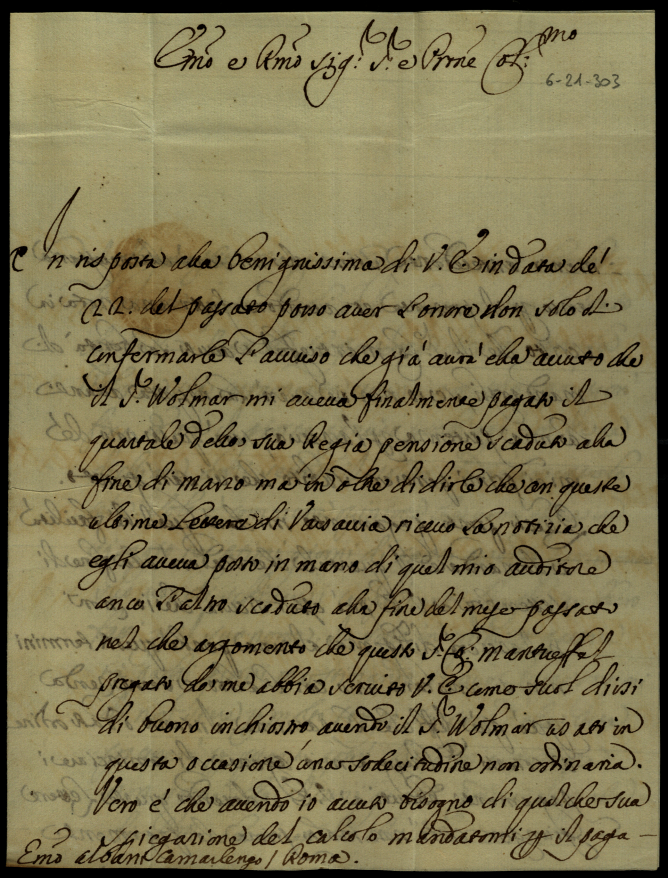 Emo e Rmo Sig.r P.r e Prone Col.mo
6-21-303
In risposta alla benignissima di V. E in data de'
22. del passato posso aver l'onore non solo di
confermarle l'avviso che già avrà ella avuto che
il S.r Wolmar mi aveva finalmente pagato il
quartale della sua Regia pensione scaduto alla
fine di marzo ma in oltre di dirle che con queste
ultime Lettere di Varsavia ricevo la notizia che
egli aveva posto in mano di quel mio auditore
anco l'altro scaduto alla fine del mese passato
nel che argomento che questo S.r Co: Manteuffel
pregato da me abbia servito V. E come suol dirsi
di buono inchiostro avendo il S.r Wolmar usato in
questa occasione una sollecitudine non ordinaria.
Vero è che avendo io avuto bisogno di qualche sua
spiegazione del calcolo mandatomi p il paga-
Emo Albani Camarlengo / Roma.